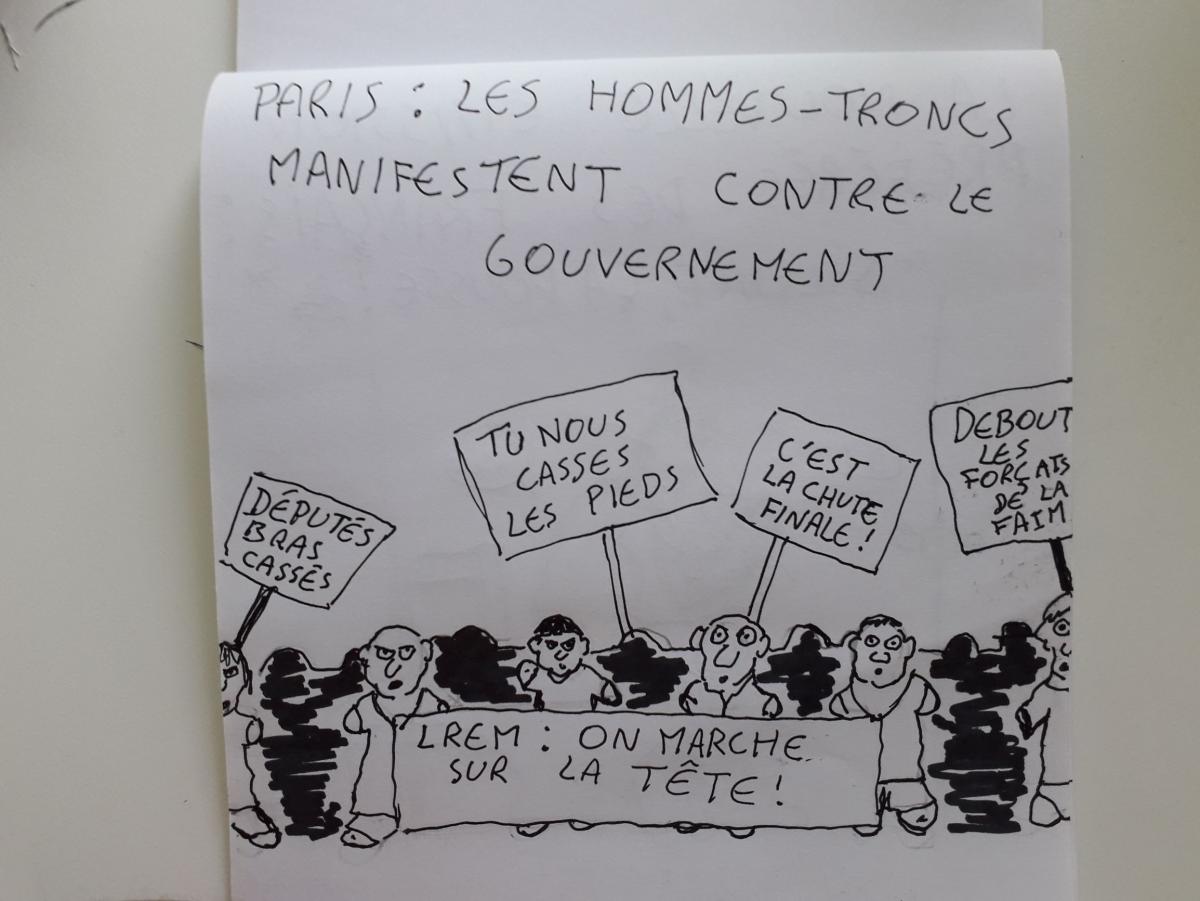 PARIS : LES HOMMES-TRONCS
MANIFESTENT CONTRE LE
GOUVERNEMENT
DÉPUTÉS
BRAS
CASSÉS
TU NOUS
CASSES
LES PIEDS
C'EST
LA CHUTE
FINALE !
DEBOUT
LES
FORÇATS
DE LA
FAIM
LREM : ON MARCHE
SUR LA TÊTE !